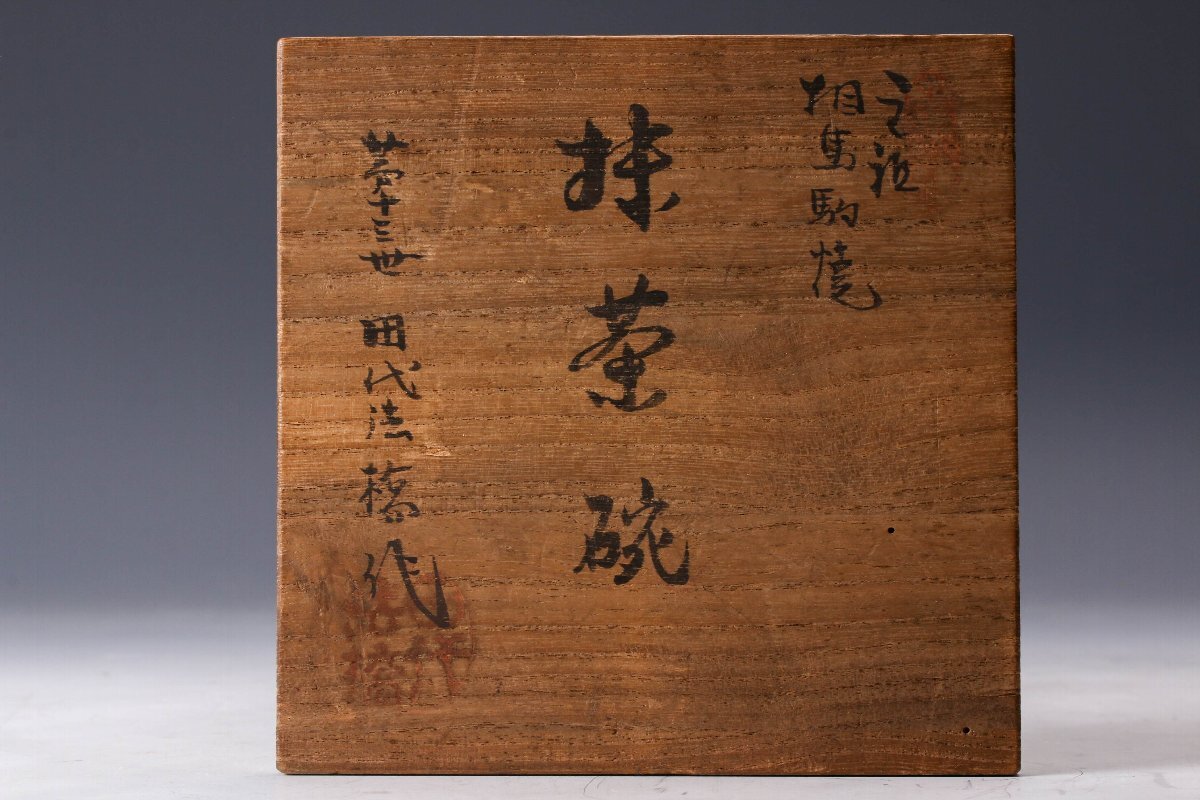 元祖
相馬駒焼
抹茶碗
第十三世 田代法橋作